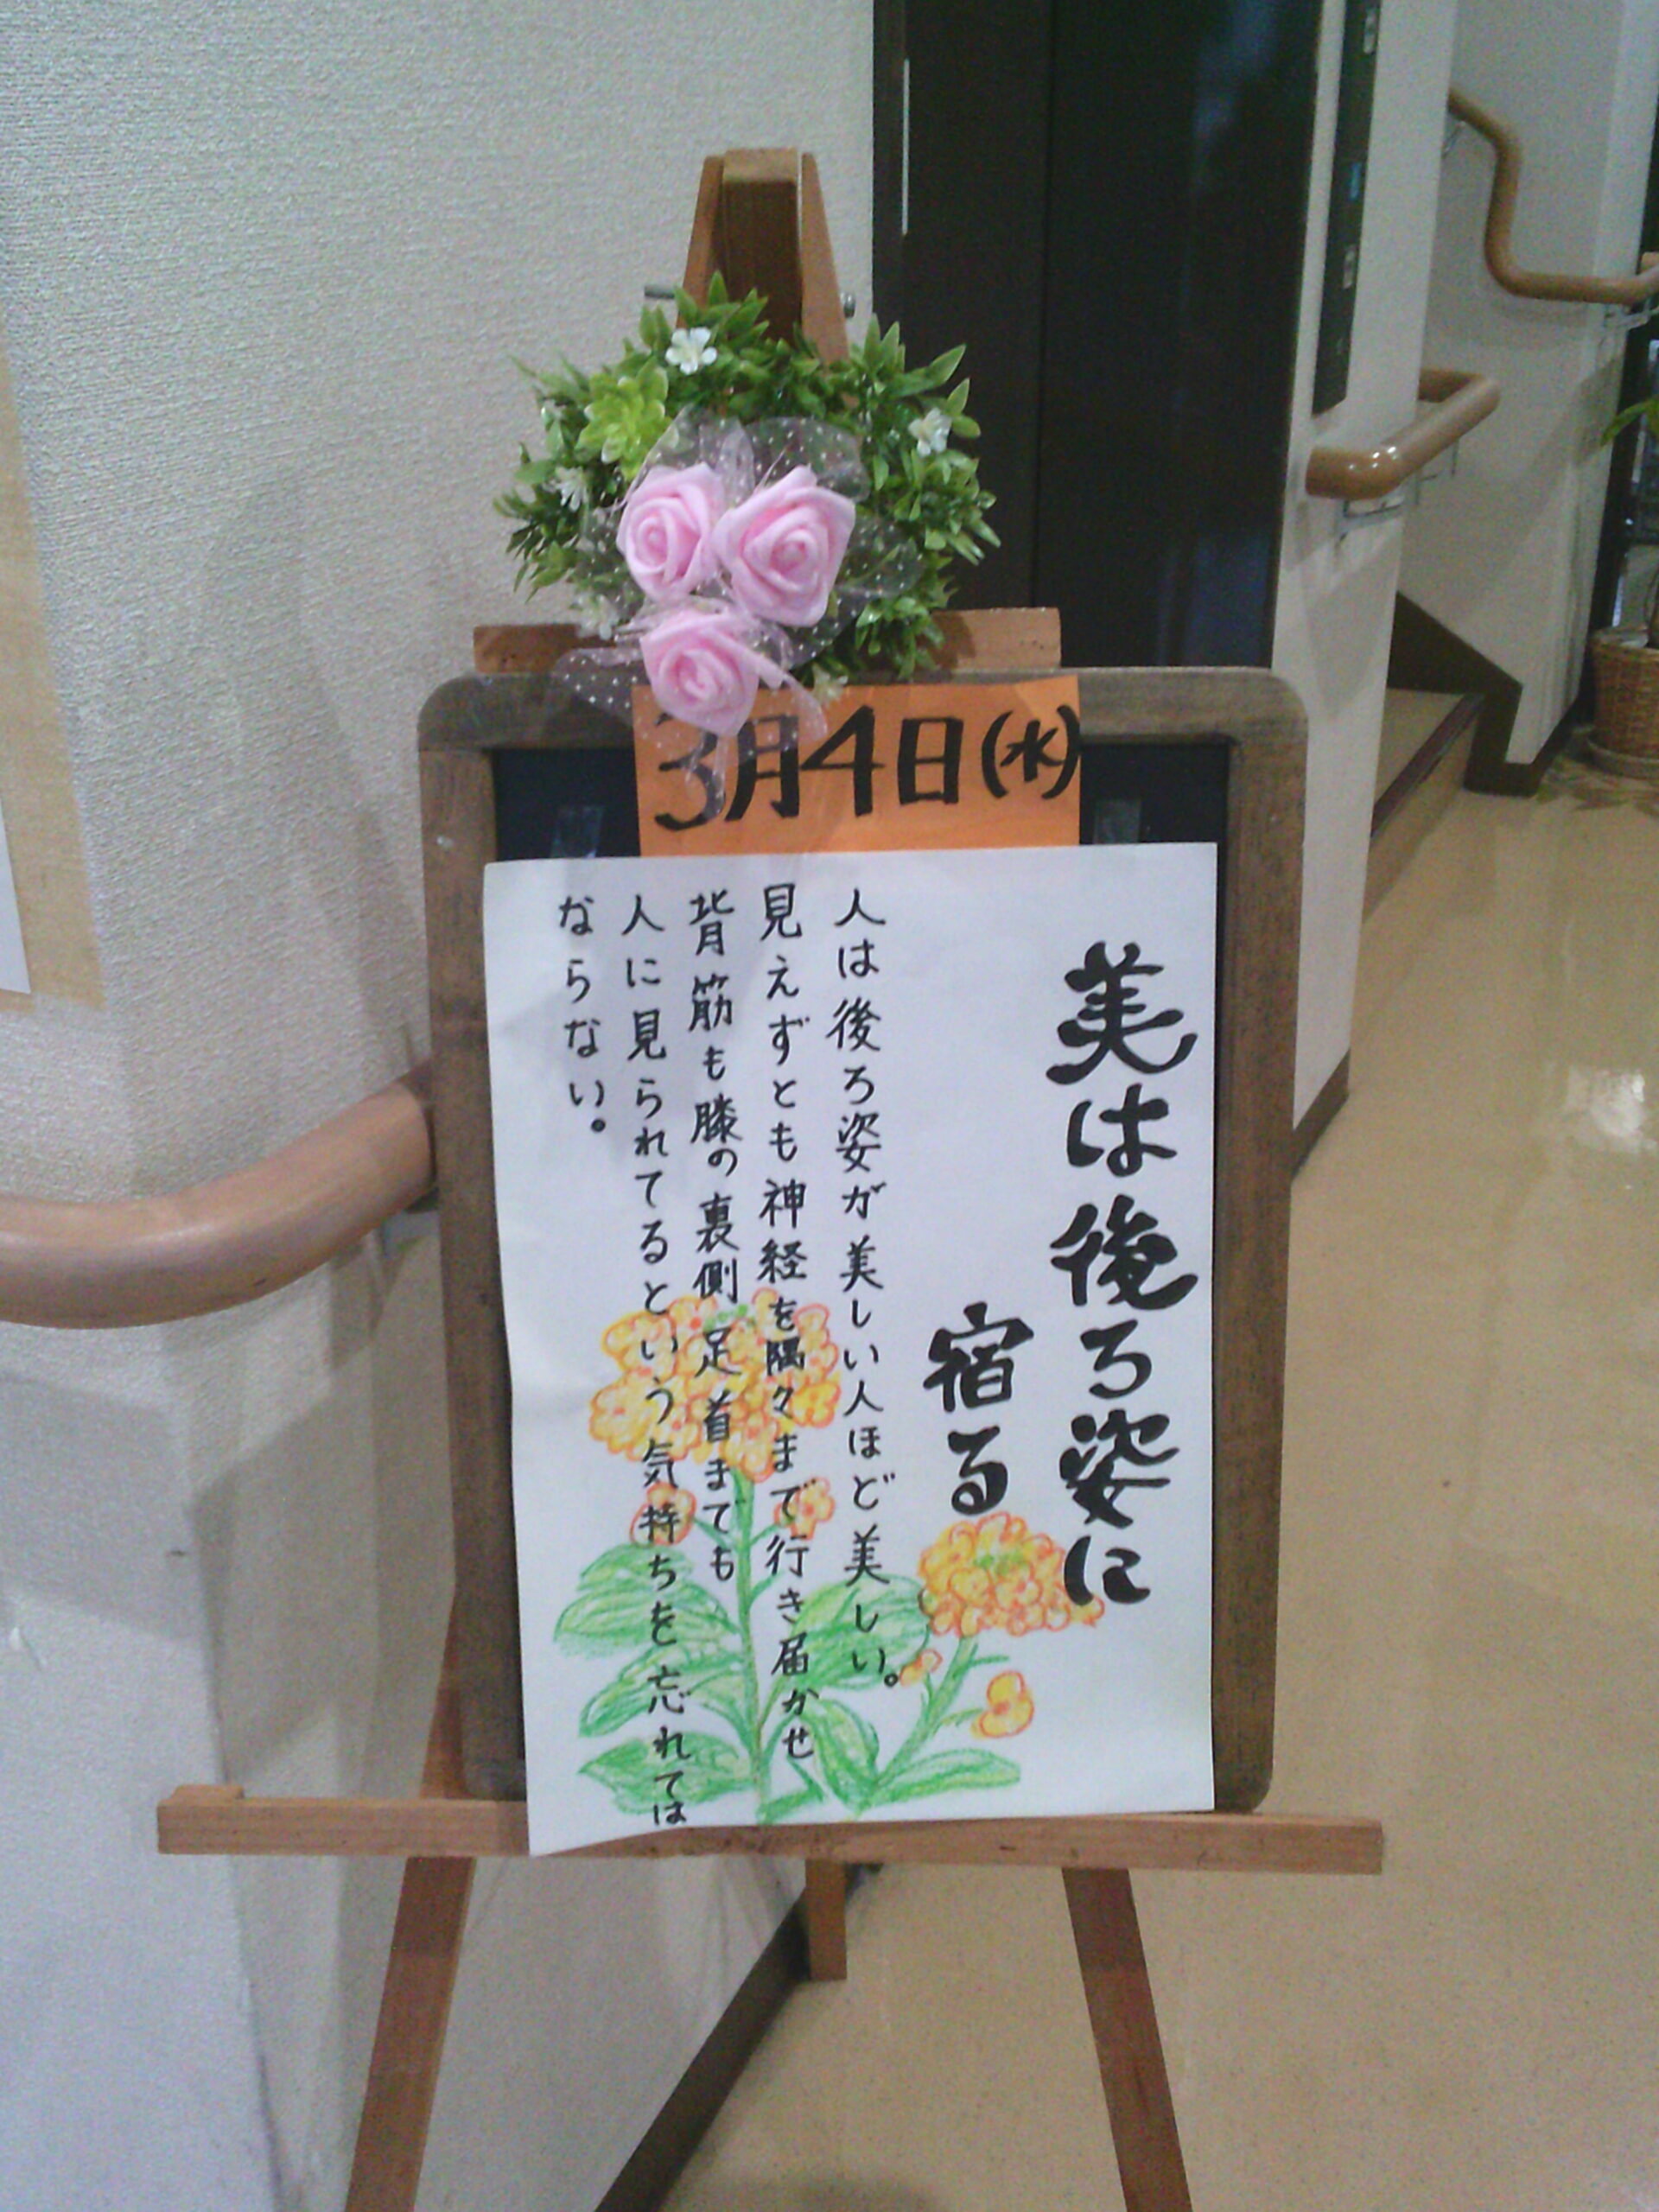 3月4日(水)
美は後ろ姿に
宿る
人は後ろ姿が美しい人ほど美しい。
見えずとも神経を隅々まで行き届かせ
背筋も膝の裏側足首までも
人に見られてるという気持ちを忘れては
ならない。